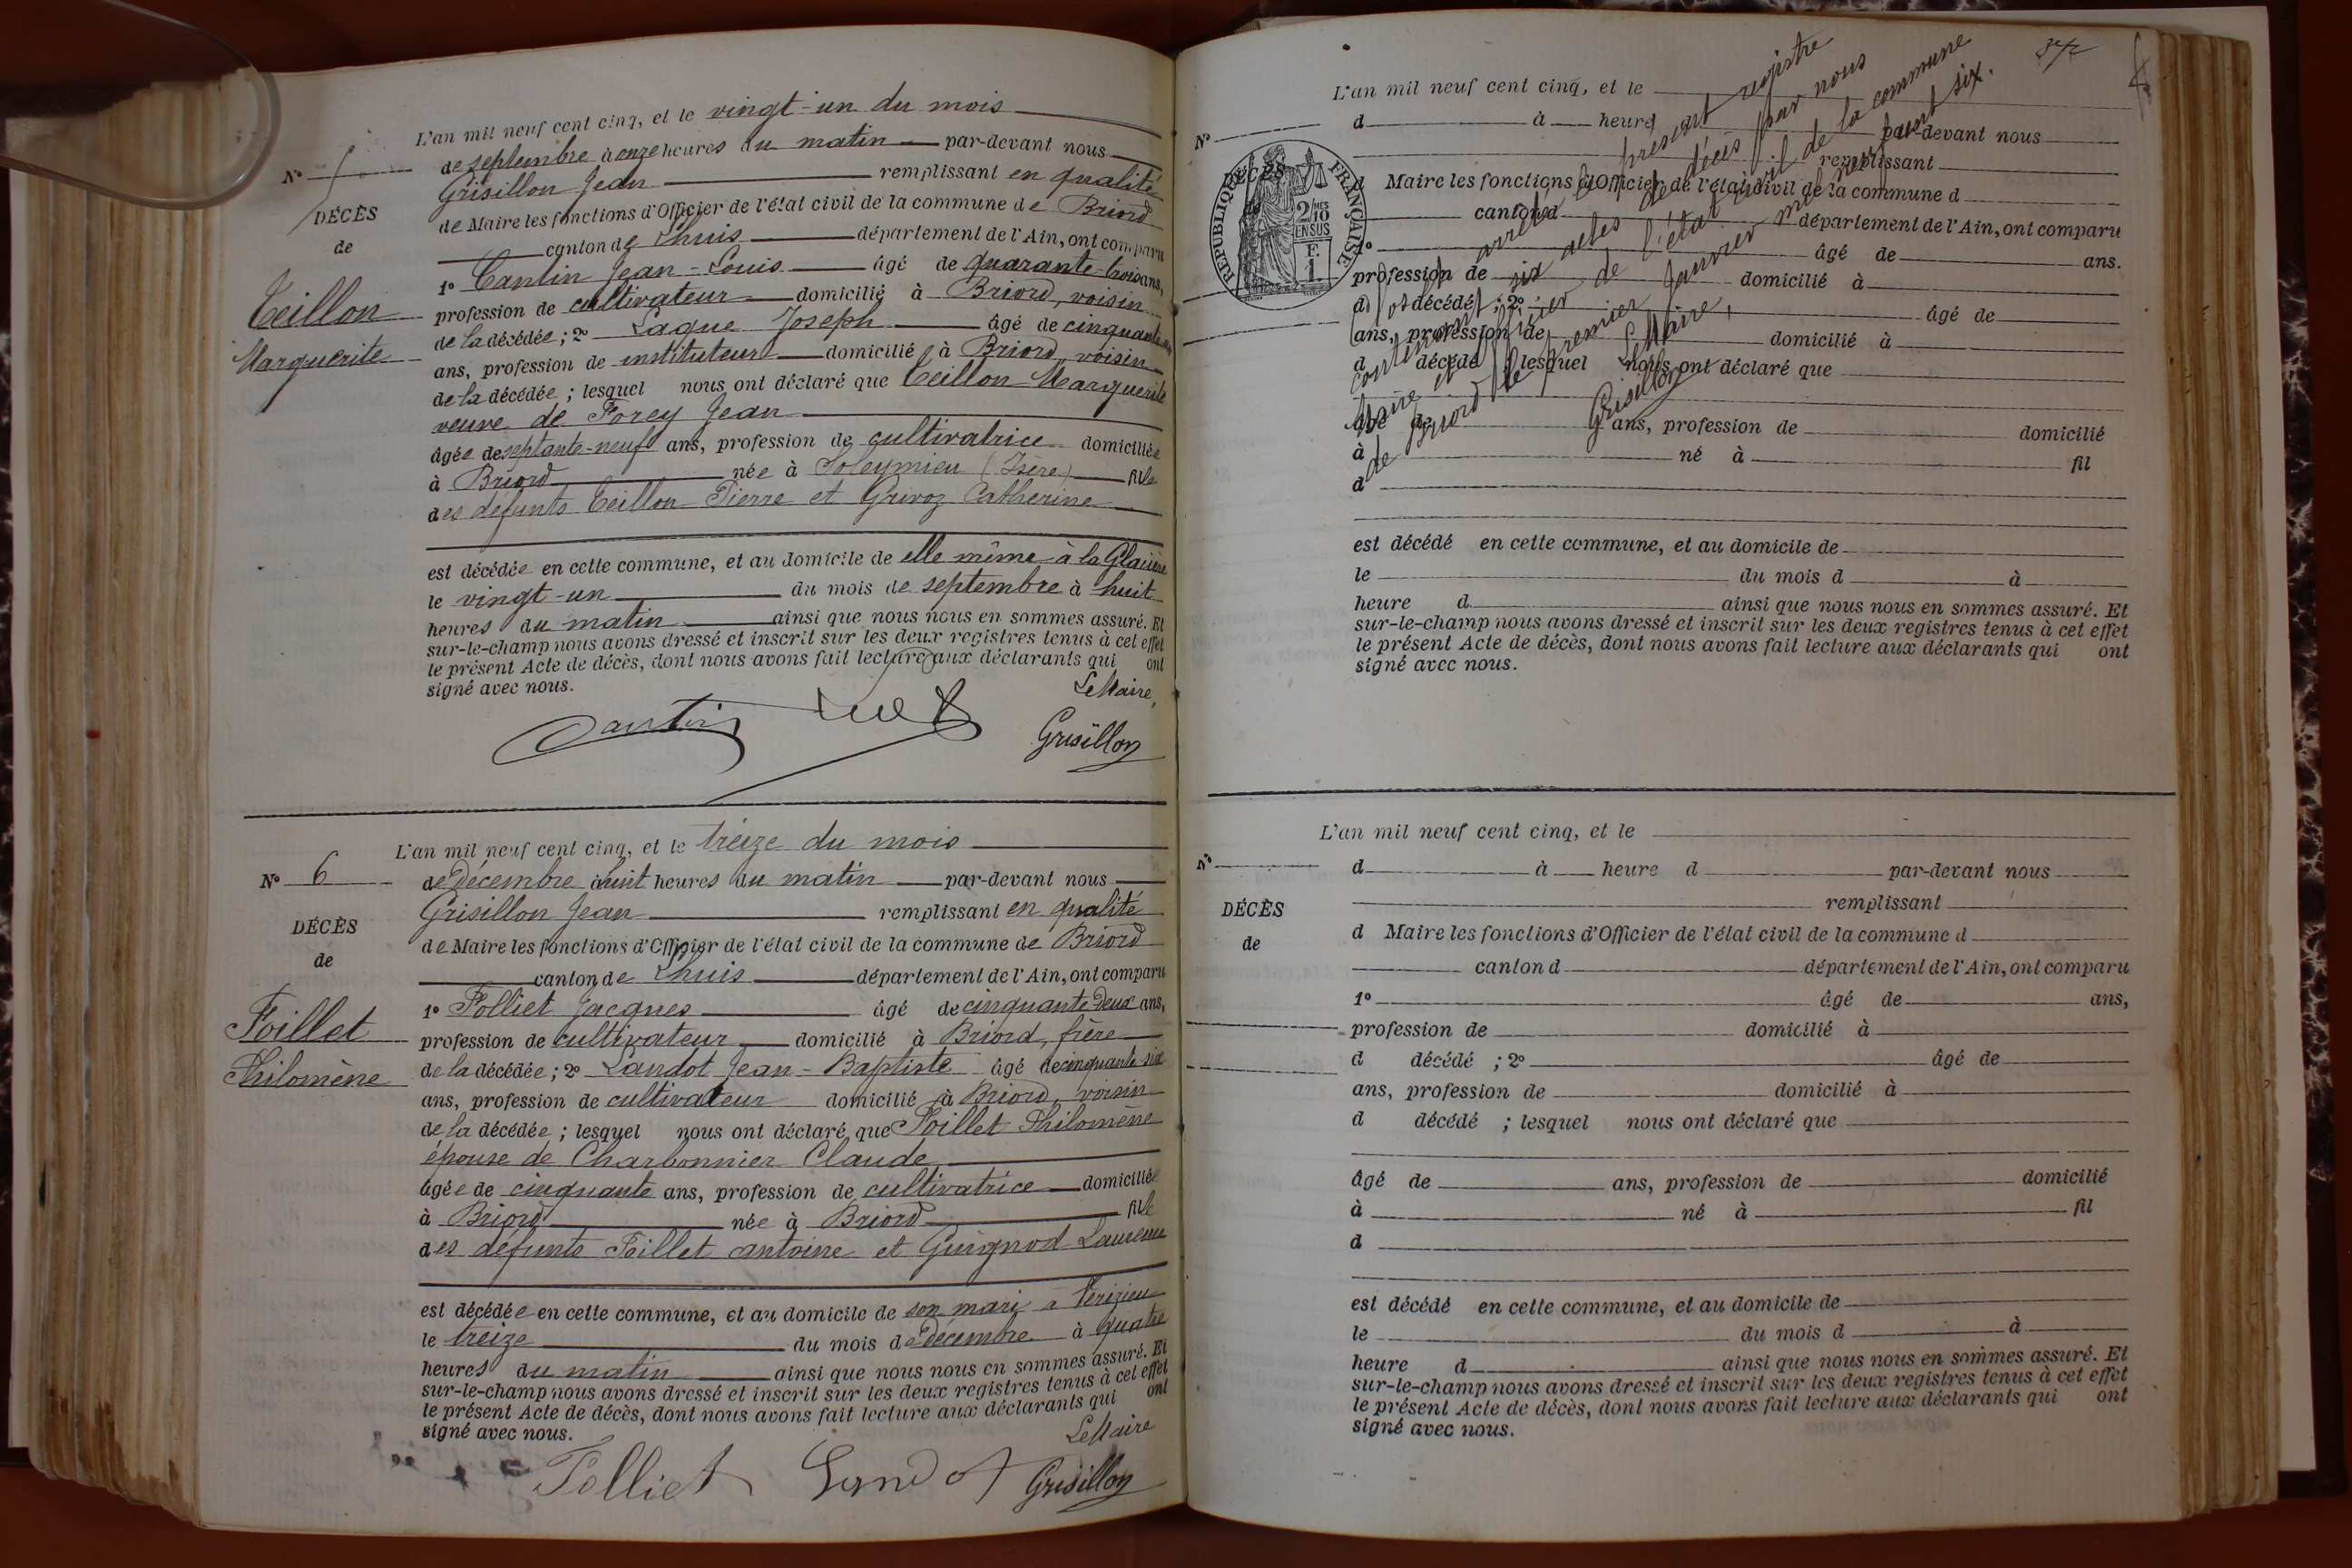 L'an mil neuf cent cinq, et le vingt-un du mois
de septembre à onze heures du matin par-devant nous
Grisillon Jean remplissant en qualité
de Maire les fonctions d'Officier de l'état civil de la commune de Briord
canton de Lhuis département de l'Ain, ont comparu
1° Cantin Jean-Louis âgé de quarante-trois ans,
profession de cultivateur domicilié à Briord, voisin
de la décédée ; 2° Lague Joseph âgé de cinquante
ans, profession de instituteur domicilié à Briord, voisin
de la décédée ; lesquel nous ont déclaré que Teillon Marguerite
veuve de Forey Jean
âgée de septante-neuf ans, profession de cultivatrice domiciliée
à Briord née à Soleymieu (Isère) fille
des défunts Teillon Pierre et Grivoz Catherine
est décédée en cette commune, et au domicile de elle même à la Glacière
le vingt-un du mois de septembre à huit
heures du matin ainsi que nous nous en sommes assuré. Et
sur-le-champ nous avons dressé et inscrit sur les deux registres tenus à cet effet
le présent Acte de décès, dont nous avons fait lecture aux déclarants qui ont
signé avec nous.
Le Maire,
Cantin
Grisillon
N° 5
DÉCÈS
de
Teillon
Marguerite
L'an mil neuf cent cinq, et le treize du mois
de Décembre à huit heures du matin par-devant nous
Grisillon Jean remplissant en qualité
de Maire les fonctions d'Officier de l'état civil de la commune de Briord
canton de Lhuis département de l'Ain, ont comparu
1° Folliet Jacques âgé de cinquante deux ans,
profession de cultivateur domicilié à Briord, frère
de la décédée ; 2° Landot Jean-Baptiste âgé de cinquante six
ans, profession de cultivateur domicilié à Briord, voisin
de la décédée ; lesquel nous ont déclaré que Foillet Philomène
épouse de Charbonnier Claude
âgée de cinquante ans, profession de cultivatrice domiciliée
à Briord née à Briord fille
des défunts Foillet antoine et Guignod Laurence
est décédée en cette commune, et au domicile de son mari à Vérizieu
le treize du mois de Décembre à quatre
heures du matin ainsi que nous nous en sommes assuré. Et
sur-le-champ nous avons dressé et inscrit sur les deux registres tenus à cet effet
le présent Acte de décès, dont nous avons fait lecture aux déclarants qui ont
signé avec nous.
Le Maire
Folliet Landot Grisillon
N° 6
DÉCÈS
de
Foillet
Philomène
L'an mil neuf cent cinq, et le
d à heure d par-devant nous
remplissant
d Maire les fonctions d'Officier de l'état civil de la commune d
canton d département de l'Ain, ont comparu
1° âgé de ans.
profession de domicilié à
d décédé ; 2° âgé de
ans, profession de domicilié à
d décédé ; lesquel nous ont déclaré que
âgé de ans, profession de domicilié
à né à fil
d
est décédé en cette commune, et au domicile de
le du mois d à
heure d ainsi que nous nous en sommes assuré. Et
sur-le-champ nous avons dressé et inscrit sur les deux registres tenus à cet effet
le présent Acte de décès, dont nous avons fait lecture aux déclarants qui ont
signé avec nous.
N°
DÉCÈS
de
RÉPUBLIQUE FRANÇAISE
2/10 MES
EN SUS
F.
1
arrêté le présent registre
contenant six actes de décès par nous
Maire et officier de l'état civil de la commune
de Briord le premier janvier mil neuf cent six.
Le Maire,
Grisillon
L'an mil neuf cent cinq, et le
d à heure d par-devant nous
remplissant
d Maire les fonctions d'Officier de l'état civil de la commune d
canton d département de l'Ain, ont comparu
1° âgé de ans,
profession de domicilié à
d décédé ; 2° âgé de
ans, profession de domicilié à
d décédé ; lesquel nous ont déclaré que
âgé de ans, profession de domicilié
à né à fil
d
est décédé en cette commune, et au domicile de
le du mois d à
heure d ainsi que nous nous en sommes assuré. Et
sur-le-champ nous avons dressé et inscrit sur les deux registres tenus à cet effet
le présent Acte de décès, dont nous avons fait lecture aux déclarants qui ont
signé avec nous.
N°
DÉCÈS
de